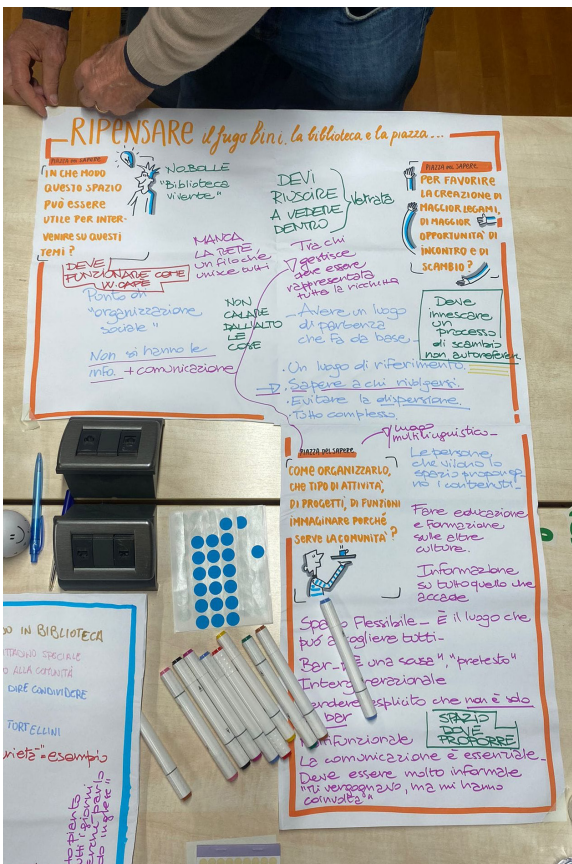 RIPENSARE il fugo Bini, la biblioteca e la piazza...
PIAZZA DEL SAPERE
IN CHE MODO
QUESTO SPAZIO
PUÒ ESSERE
UTILE PER INTER-
VENIRE SU QUESTI
TEMI?
NOBOLLE
"Biblioteca
vivente"
DEVE
FUNZIONARE COME
W. CAFE
MANCA
LA RETE
un filo che
unisce tutti
Punto di
"organizzazione
sociale"
NON
CALARE
DALL'ALTO
LE
COSE
Non si hanno le
info. + comunicazione
DEVI
RIUSCIRE
A VEDERE
DENTRO
Vetrata
Tra chi
gestisce
deve essere
rappresentata
tutta la ricchezza
- Avere un luogo
di partenza
che fa da base.
• Un luogo di riferimento.
Sapere a chi rivolgersi.
• Evitare la dispersione.
• Tutto complesso
PIAZZA DEL SAPERE
PER FAVORIRE
LA CREAZIONE DI
MAGGIOR LEGAMI,
DI MAGGIOR
OPPORTUNITA' DI
INCONTRO E DI
SCAMBIO?
Deve
innescare
un
processo
di scambio
non autoreferen
luogo
multilinguistico -
PIAZZA DEL SAPERE
COME ORGANIZZARLO,
CHE TIPO DI ATTIVITA',
DI PROGETTI, DI FUNZIONI
IMMAGINARE PERCHÉ
SERVE LA COMUNITA'?
Le persone,
che vivono lo
spazio propongo-
no i contenuti.
Fare educazione
e Formazione
sulle altre
culture.
Informazione
su tutto quello che
accade
Flessibile - È il luogo che
può accogliere tutti -
Bar - È una scusa", "pretesto"
Intergenerazionale
esplicito che non è solo
bar
SPAZIO
DOVE
PROPORRE
La comunicazione è essenziale -
Deve essere molto informale
"Mi vergognavo, ma mi hanno
coinvolta"
IN BIBLIOTECA
SPECIALE
ALLA COMUNITÀ
DIRE CONDIVIDERE
TORTELLINI
esempio
pianto
tutti i giorni
perché parlo
inglese"